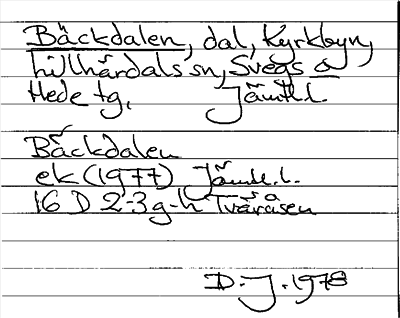 Bäckdalen, dal, Kyrkbyn,
Lillhärdals sn, Svegs o
Hede tg, Jämtl.l.
Bäckdalen
ek (1977) Jämtl.l.
16 D 2-3 g-h Tvåråsen
D.J. 1978